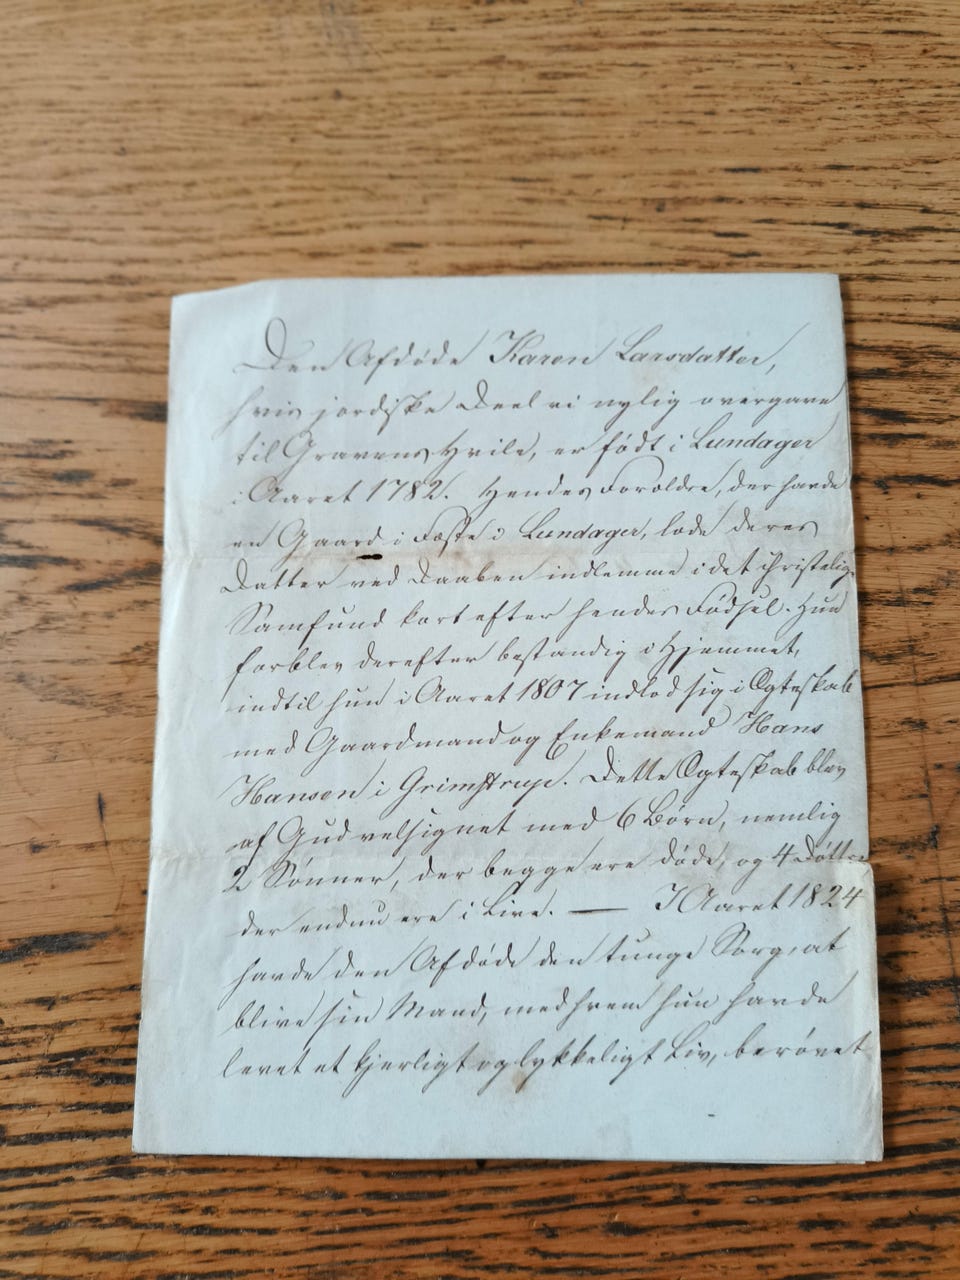 Den Afdøde Karen Larsdatter,
hvis jordiske Deel vi nylig overgave
til Gravens Hvile, er født i Lundager
i Aaret 1782. Hendes Forældre, der havde
en Gaard i Fæste i Lundager, lode deres
Datter ved Daaben indlemme i det christelige
Samfund kort efter hendes Fødsel. Hun
forblev derefter bestandig i Hjemmet,
indtil hun i Aaret 1807 indlod sig i Ægteskab
med Gaardmand og Enkemand Hans
Hansen i Grimstrup. Dette Ægteskab blev
af Gud velsignet med 6 Børn, nemlig
2 Sønner, der begge ere døde, og 4 Døttre
der endnu ere i Live. — I Aaret 1824
havde den Afdøde den tunge Sorg, at
blive sin Mand, med hvem hun havde
levet et kjerligt og lykkeligt Liv, berøvet